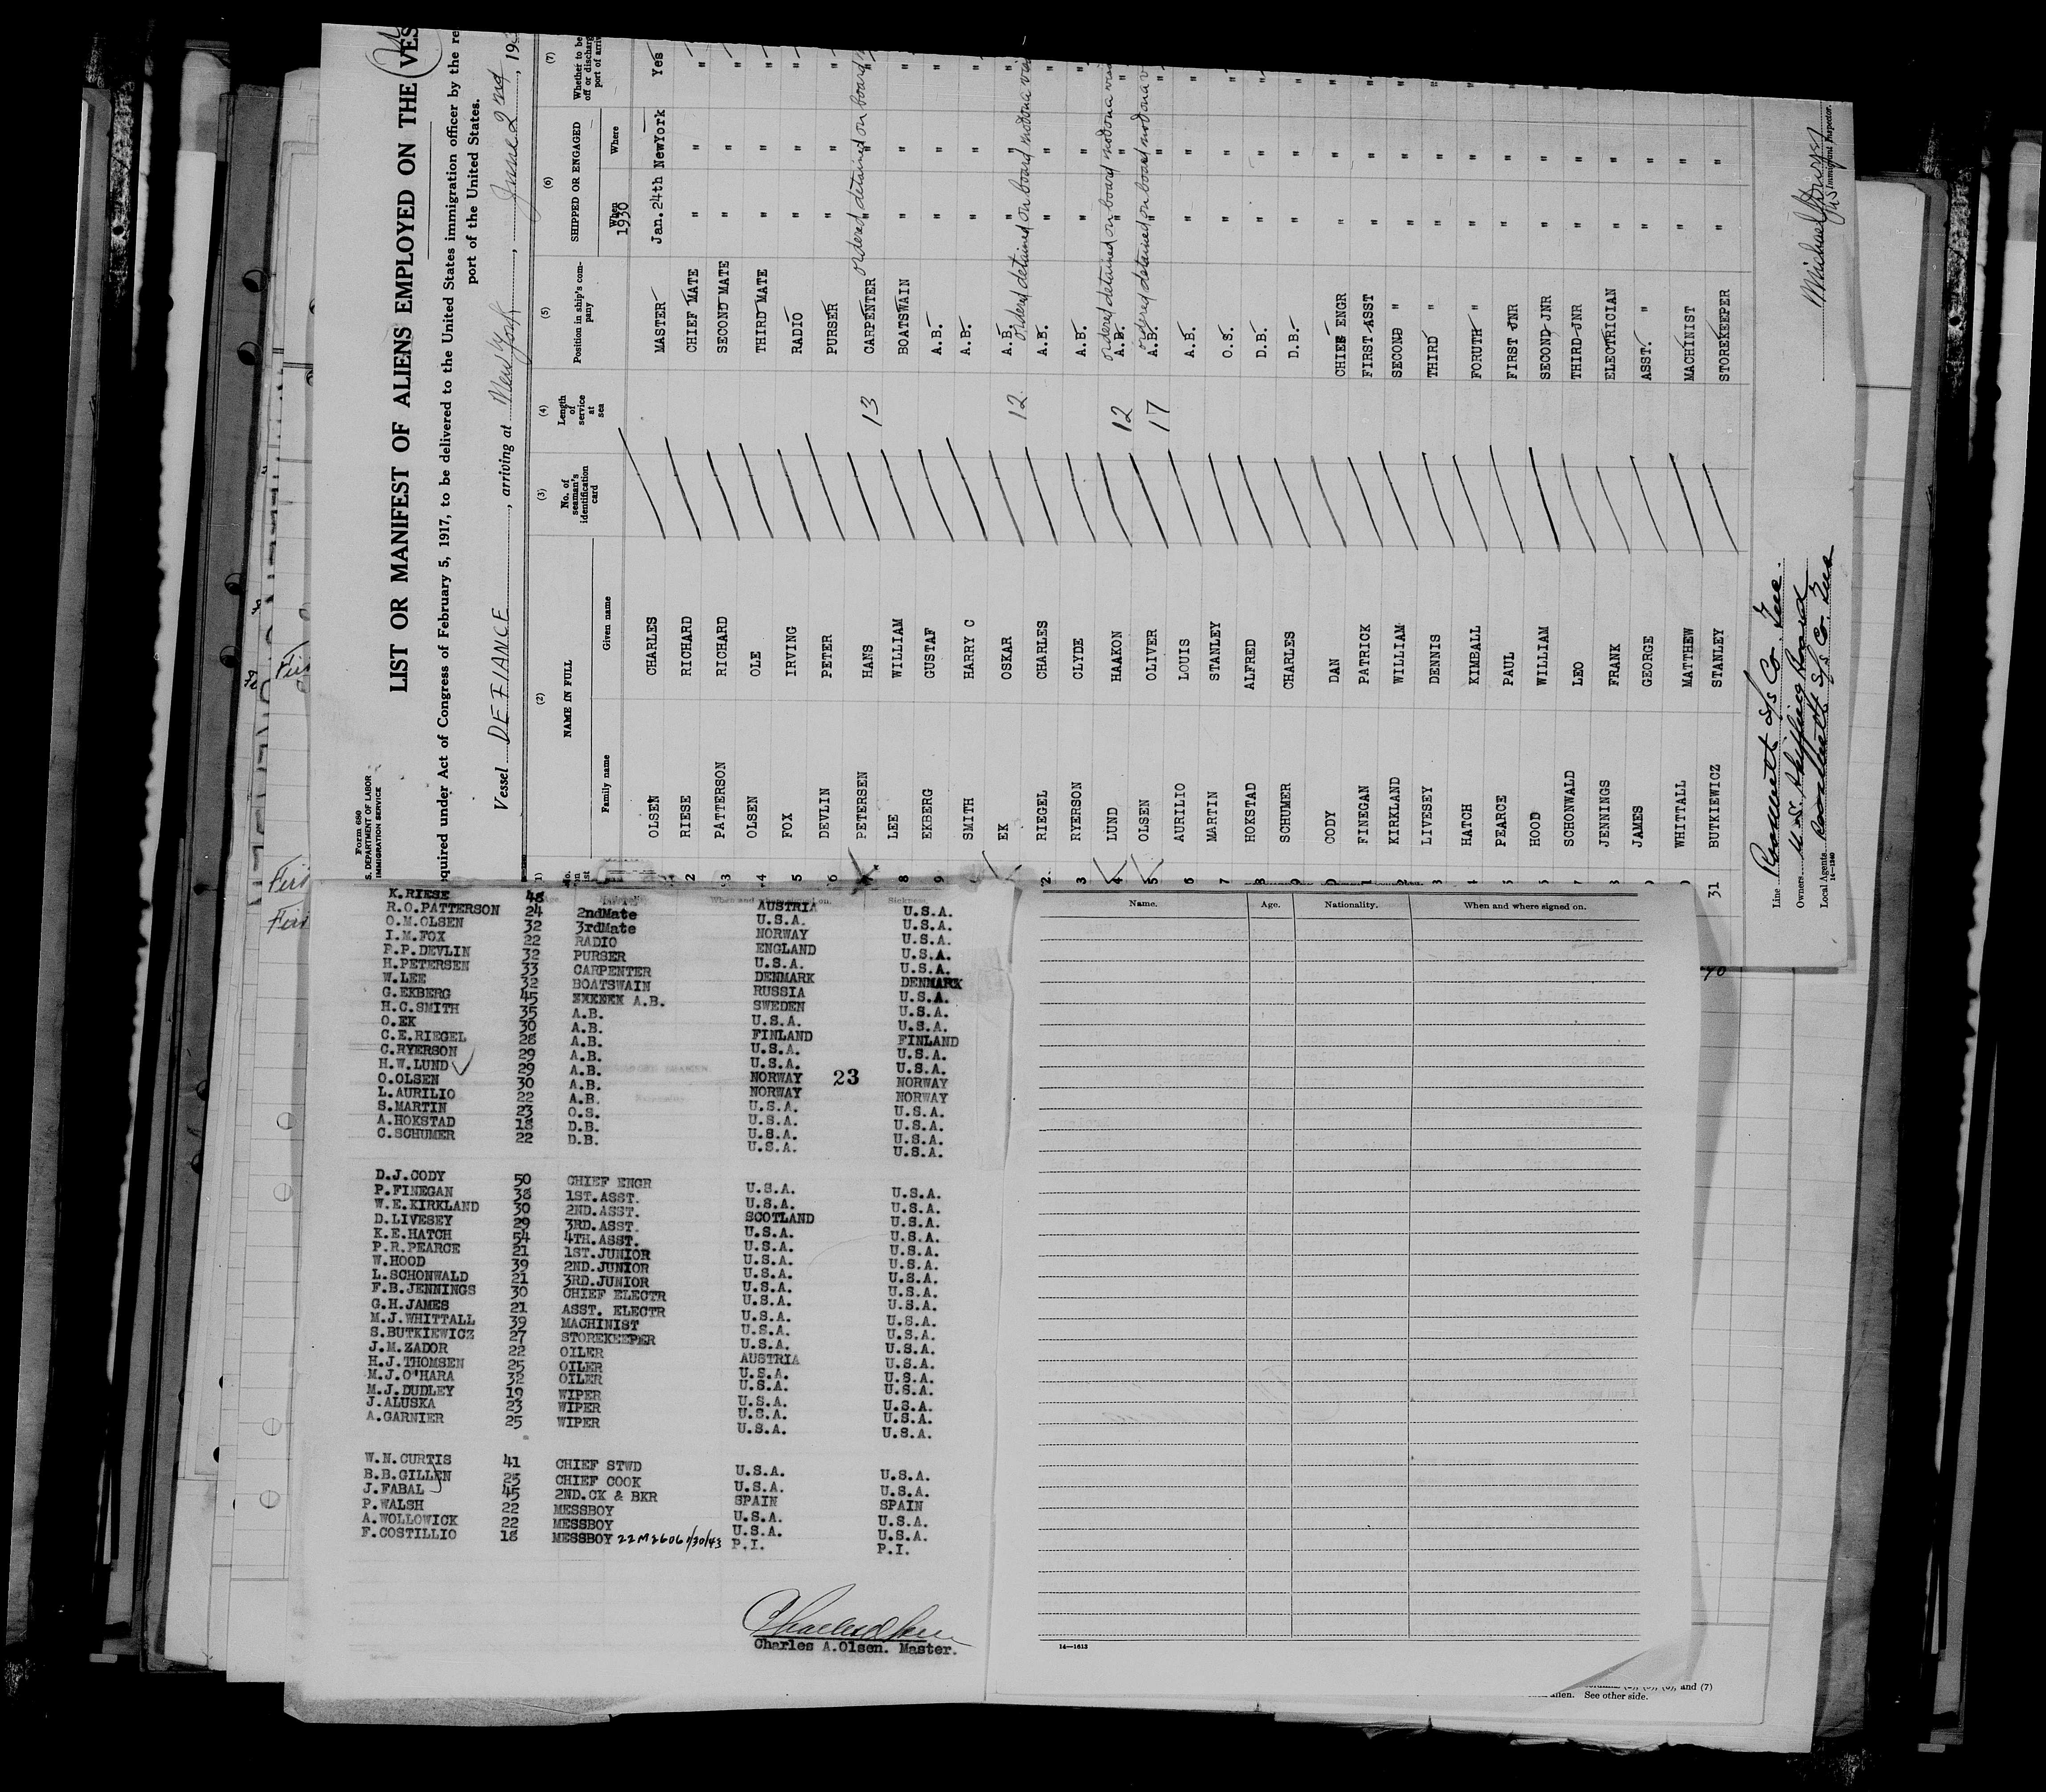 Form 680
S. DEPARTMENT OF LABOR
IMMIGRATION SERVICE
LIST OR MANIFEST OF ALIENS EMPLOYED ON THE VES
equired under Act of Congress of February 5, 1917, to be delivered to the United States immigration officer by the re
port of the United States.
Vessel DEFIANCE, arriving at New York, June 2nd, 19
(2) (3) (4) (5) (6) (7)
NAME IN FULL
Family name Given name
No. of seaman's identification card
Length of service at sea
Position in ship's company
SHIPPED OR ENGAGED
When Where
1930
OLSEN CHARLES MASTER Jan. 24th NewYork Yes
2 RIESE RICHARD CHIEF MATE " " "
3 PATTERSON RICHARD SECOND MATE " " "
4 OLSEN OLE THIRD MATE " " "
5 FOX IRVING RADIO " " "
6 DEVLIN PETER PURSER " " "
PETERSEN HANS 13 CARPENTER " " " ordered detained on board
8 LEE WILLIAM BOATSWAIN " " "
9 EKBERG GUSTAF A.B. " " "
SMITH HARRY C A.B. " " "
EK OSKAR 12 A.B. " " " ordered detained on board
2 RIEGEL CHARLES A.B. " " "
3 RYERSON CLYDE A.B. " " "
4 LUND HAAKON 12 A.B. " " " ordered detained on board
5 OLSEN OLIVER 17 A.B. " " " ordered detained on board
6 AURILIO LOUIS A.B. " " "
7 MARTIN STANLEY O.S. " " "
8 HOKSTAD ALFRED D.B. " " "
9 SCHUMER CHARLES D.B. " " "
0 CODY DAN CHIEF ENGR " " "
1 FINEGAN PATRICK FIRST ASST " " "
2 KIRKLAND WILLIAM SECOND " " " "
3 LIVESEY DENNIS THIRD " " " "
4 HATCH KIMBALL FORUTH " " " "
5 PEARCE PAUL FIRST JNR " " "
HOOD WILLIAM SECOND JNR " " "
7 SCHONWALD LEO THIRD JNR " " "
8 JENNINGS FRANK ELECTRICIAN " " "
JAMES GEORGE ASST. " " " "
WHITTALL MATTHEW MACHINIST " " "
31 BUTKIEWICZ STANLEY STOREKEEPER " " "
Line Roosevelt S/S Co. Inc.
Owners U.S. Shipping Board
Local Agents Roosevelt S/S Co. Inc
14—1240
Immigrant Inspector.
K.RIESE 48 AUSTRIA U.S.A.
R.O.PATTERSON 24 2ndMate U.S.A. U.S.A.
O.M.OLSEN 32 3rdMate NORWAY U.S.A.
I.M.FOX 22 RADIO ENGLAND U.S.A.
P.P.DEVLIN 32 PURSER U.S.A. U.S.A.
H.PETERSEN 33 CARPENTER DENMARK DENMARK
W.LEE 32 BOATSWAIN RUSSIA U.S.A.
G.EKBERG 45 A.B. SWEDEN U.S.A.
H.C.SMITH 35 A.B. U.S.A. U.S.A.
O.EK 30 A.B. FINLAND FINLAND
C.E.RIEGEL 28 A.B. U.S.A. U.S.A.
C.RYERSON 29 A.B. U.S.A. U.S.A.
H.W.LUND 29 A.B. NORWAY 23 NORWAY
O.OLSEN 30 A.B. NORWAY NORWAY
L.AURILIO 22 A.B. U.S.A. U.S.A.
S.MARTIN 23 O.S. U.S.A. U.S.A.
A.HOKSTAD 18 D.B. U.S.A. U.S.A.
C.SCHUMER 22 D.B. U.S.A. U.S.A.
D.J.CODY 50 CHIEF ENGR U.S.A. U.S.A.
P.FINEGAN 38 1ST.ASST. U.S.A. U.S.A.
W.E.KIRKLAND 30 2ND.ASST. SCOTLAND U.S.A.
D.LIVESEY 29 3RD.ASST. U.S.A. U.S.A.
K.E.HATCH 54 4TH.ASST. U.S.A. U.S.A.
P.R.PEARCE 21 1ST.JUNIOR U.S.A. U.S.A.
W.HOOD 39 2ND.JUNIOR U.S.A. U.S.A.
L.SCHONWALD 21 3RD.JUNIOR U.S.A. U.S.A.
F.B.JENNINGS 30 CHIEF ELECTR U.S.A. U.S.A.
G.H.JAMES 21 ASST. ELECTR U.S.A. U.S.A.
M.J.WHITTALL 39 MACHINIST U.S.A. U.S.A.
S.BUTKIEWICZ 27 STOREKEEPER U.S.A. U.S.A.
J.M.ZADOR 22 OILER AUSTRIA U.S.A.
H.J.THOMSEN 25 OILER U.S.A. U.S.A.
M.J.O'HARA 32 OILER U.S.A. U.S.A.
M.J.DUDLEY 19 WIPER U.S.A. U.S.A.
J.ALUSKA 23 WIPER U.S.A. U.S.A.
A.GARNIER 25 WIPER U.S.A. U.S.A.
W.N.CURTIS 41 CHIEF STWD U.S.A. U.S.A.
B.B.GILLEN 25 CHIEF COOK U.S.A. U.S.A.
J.FABAL 45 2ND.CK & BKR SPAIN SPAIN
P.WALSH 22 MESSBOY U.S.A. U.S.A.
A.WOLLOWICK 22 MESSBOY U.S.A. U.S.A.
F.COSTILLIO 18 MESSBOY 22M2606 1/30/43 P.I. P.I.
Charles A.Olsen. Master.
Name. Age. Nationality. When and where signed on.
14—1613
and (7)
See other side.